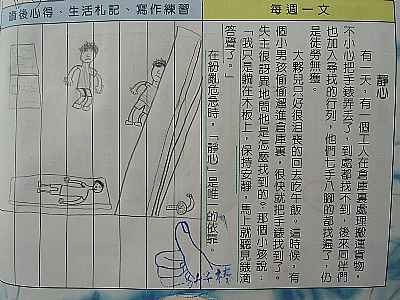 每週一文
靜心
有一天，有一個工人在倉庫裏處理搬運貨物，
不小心把手錶弄丟了，到處都找不到，後來同伴們
也加入尋找的行列，他們七手八腳的都找遍了，仍
是徒勞無獲。
大夥兒只好很沮喪的回去吃午飯。這時候，有
個小男孩偷偷溜進倉庫裏，很快就把手錶找到了。
失主很訝異地問他是怎麼找到的。那個小孩說：
「我只是躺在木板上，保持安靜，馬上就聽見錶滴
答聲了。」
在紛亂危急時，「靜心」是唯一的依靠。
讀後心得、生活札記、寫作練習